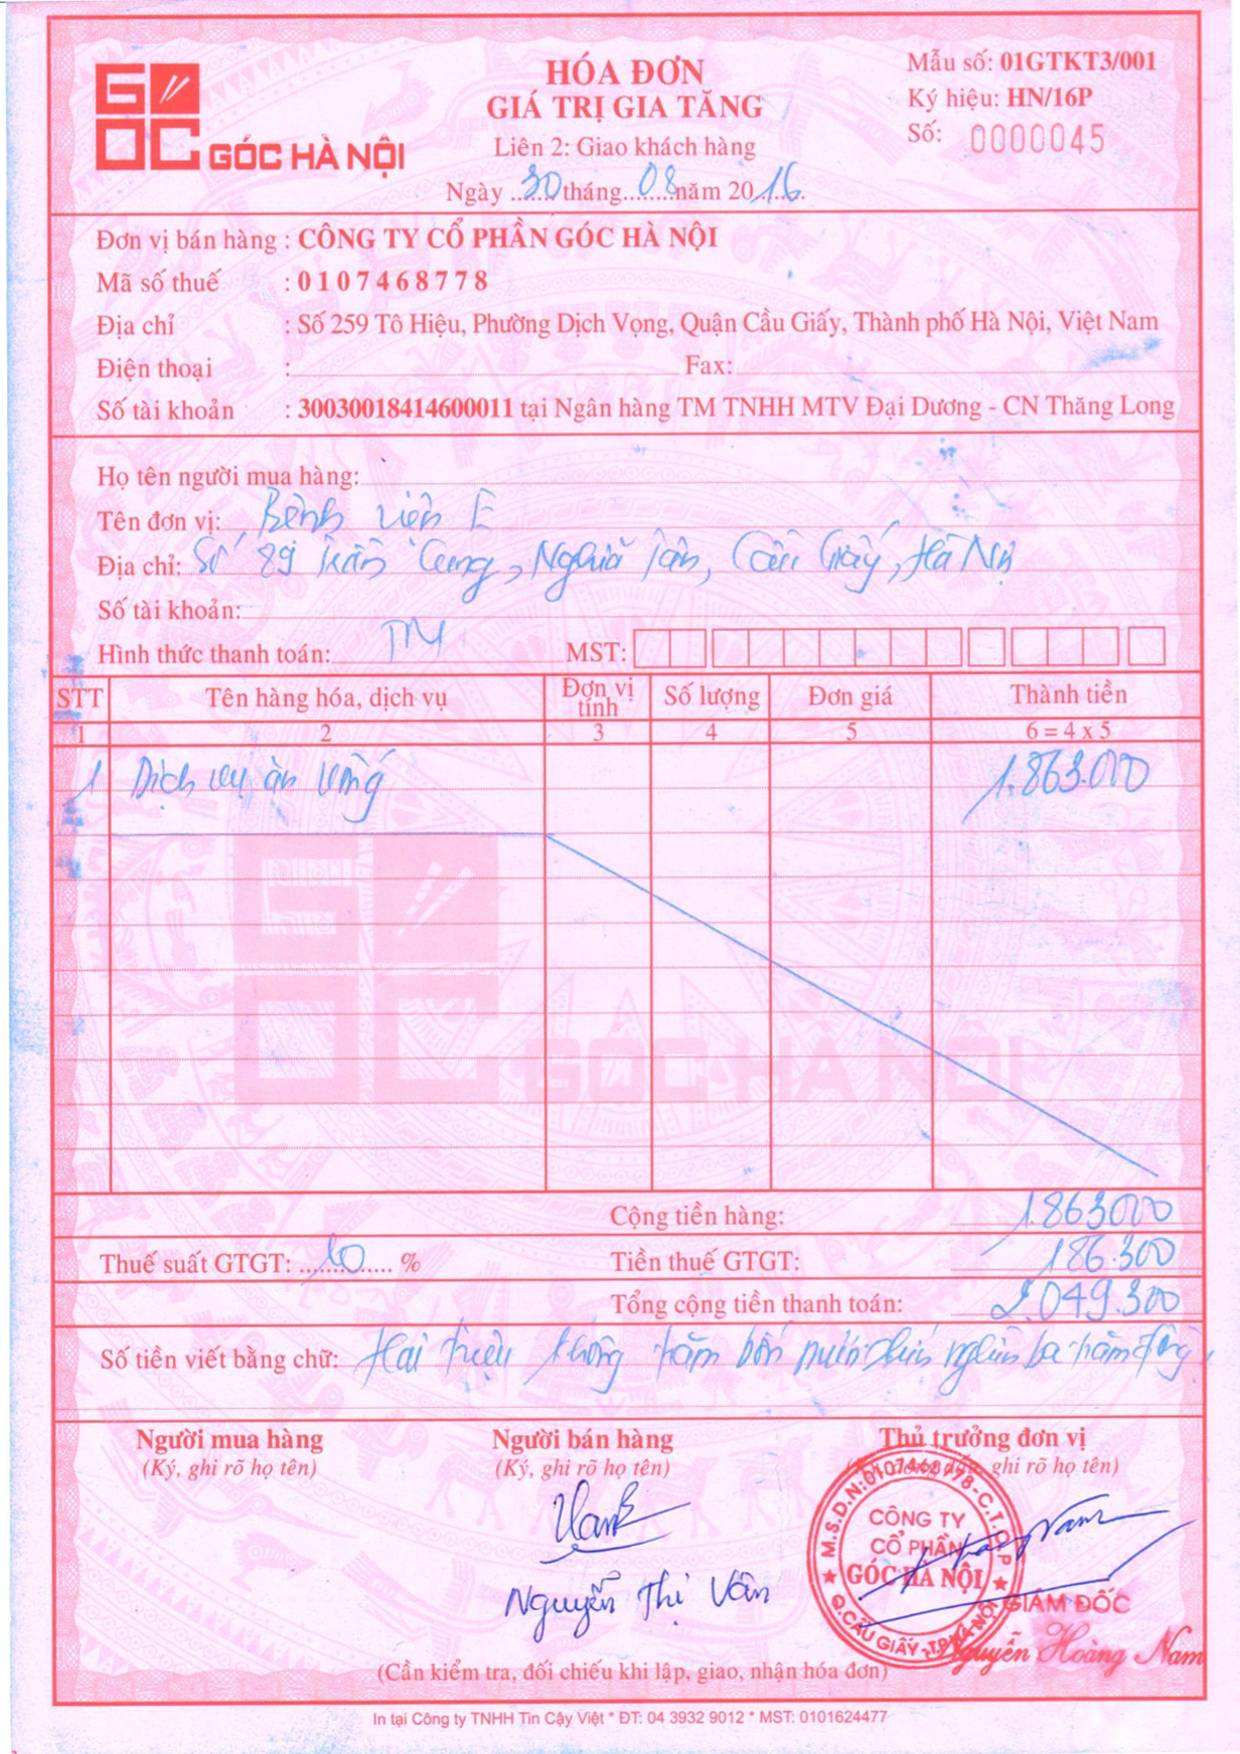 GÓC HÀ NỘI
HÓA ĐƠN
GIÁ TRỊ GIA TĂNG
Liên 2: Giao khách hàng
Ngày 30 tháng 08 năm 2016.
Mẫu số: 01GTKT3/001
Ký hiệu: HN/16P
Số: 0000045
Đơn vị bán hàng : CÔNG TY CỔ PHẦN GÓC HÀ NỘI
Mã số thuế : 0107468778
Địa chỉ : Số 259 Tô Hiệu, Phường Dịch Vọng, Quận Cầu Giấy, Thành phố Hà Nội, Việt Nam
Điện thoại : Fax:
Số tài khoản : 30030018414600011 tại Ngân hàng TM TNHH MTV Đại Dương - CN Thăng Long
Họ tên người mua hàng:
Tên đơn vị: Bệnh viện E
Địa chỉ: Số 89 Trần Cung, Nghĩa Tân, Cầu Giấy, Hà Nội
Số tài khoản:
Hình thức thanh toán: TM MST:
STT Tên hàng hóa, dịch vụ Đơn vị tính Số lượng Đơn giá Thành tiền
1 2 3 4 5 6 = 4 x 5
1 Dịch vụ ăn uống 1.863.000
GÓC HÀ NỘI
Cộng tiền hàng: 1.863000
Thuế suất GTGT: 10 % Tiền thuế GTGT: 186.300
Tổng cộng tiền thanh toán: 2.049.300
Số tiền viết bằng chữ: Hai triệu không trăm bốn mươi chín nghìn ba trăm đồng.
Người mua hàng Người bán hàng Thủ trưởng đơn vị
(Ký, ghi rõ họ tên) (Ký, ghi rõ họ tên) ghi rõ họ tên)
M.S.D.N:0107468778-C.T.C.P
CÔNG TY
CỔ PHẦN
GÓC HÀ NỘI
Q.CẦU GIẤY-TP.HÀ NỘI
Nguyễn Thị Vân
GIÁM ĐỐC
Nguyễn Hoàng Nam
(Cần kiểm tra, đối chiếu khi lập, giao, nhận hóa đơn)
In tại Công ty TNHH Tin Cậy Việt * ĐT: 04 3932 9012 * MST: 0101624477